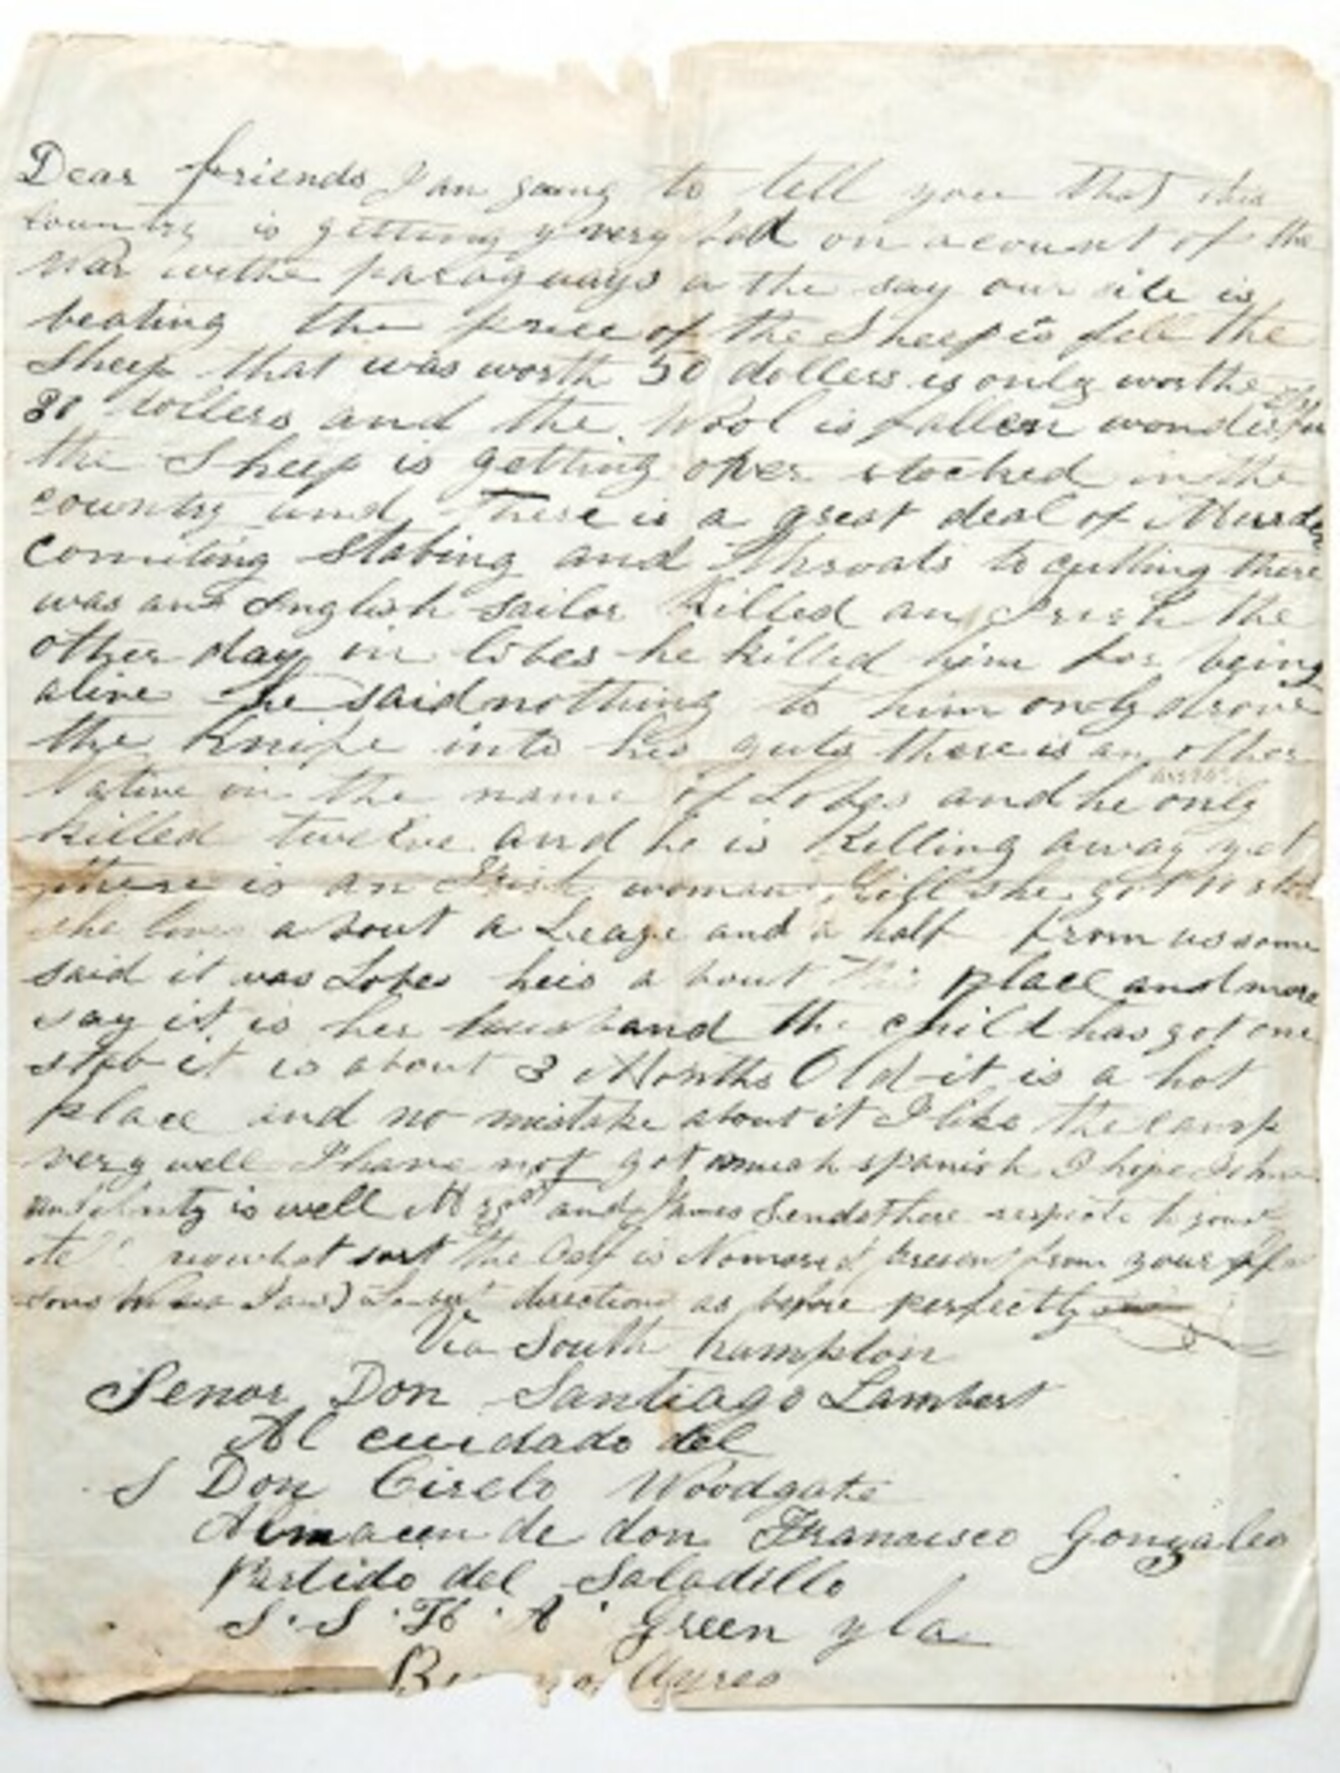 Dear friends I an going to tell you that this
country is getting y very bad on acount of the
War withe paraguays a the say our side is
beating the price of the Sheep is fell the
Sheep that was worth 50 dollers is only worthe
30 dollers and the Wool is fallen wonderfu
the Sheep is getting over stocked in the
country and There is a great deal of Murder
comiting Stabing and Throats to cutting there
was an English sailor Killed an Irish the
other day in Lobes he killed him for being
alive he said nothing to him only drove
the Knife into his guts there is an other
Native in the name of Lobes and he only
killed twelve and he is Killing away yet
there is an Irish woman Kill she got 11 stob
she lives a bout a Leage and a half from us some
said it was Lobes heis a bout this place and more
say it is her husband the child has got one
stob it is about 3 Months Old it is a hot
place and no mistake about it I like the camp
very well I have not got much spanish I hope John
and is well and James Sends there respects to you
what sort the Calf is No more at present from your
direction as before perfectly
Via South hampton
Senor Don Santiago Lambert
Al cuidado del
S Don Cirelo Woodgate
Almacen de don Francisco Gonzales
Partido del Saladillo
S. S. H. A. Green y Ca
Ayres